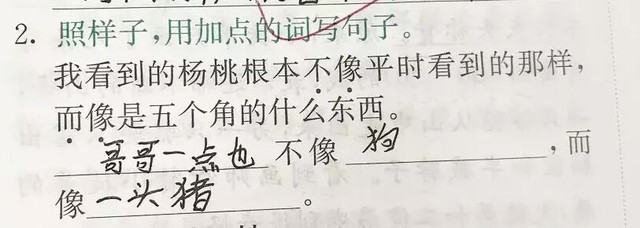 2. 照样子,用加点的词写句子。
我看到的杨桃根本不像平时看到的那样,
而像是五个角的什么东西。
哥哥一点也 不像 狗 ,而
像 一头猪 。